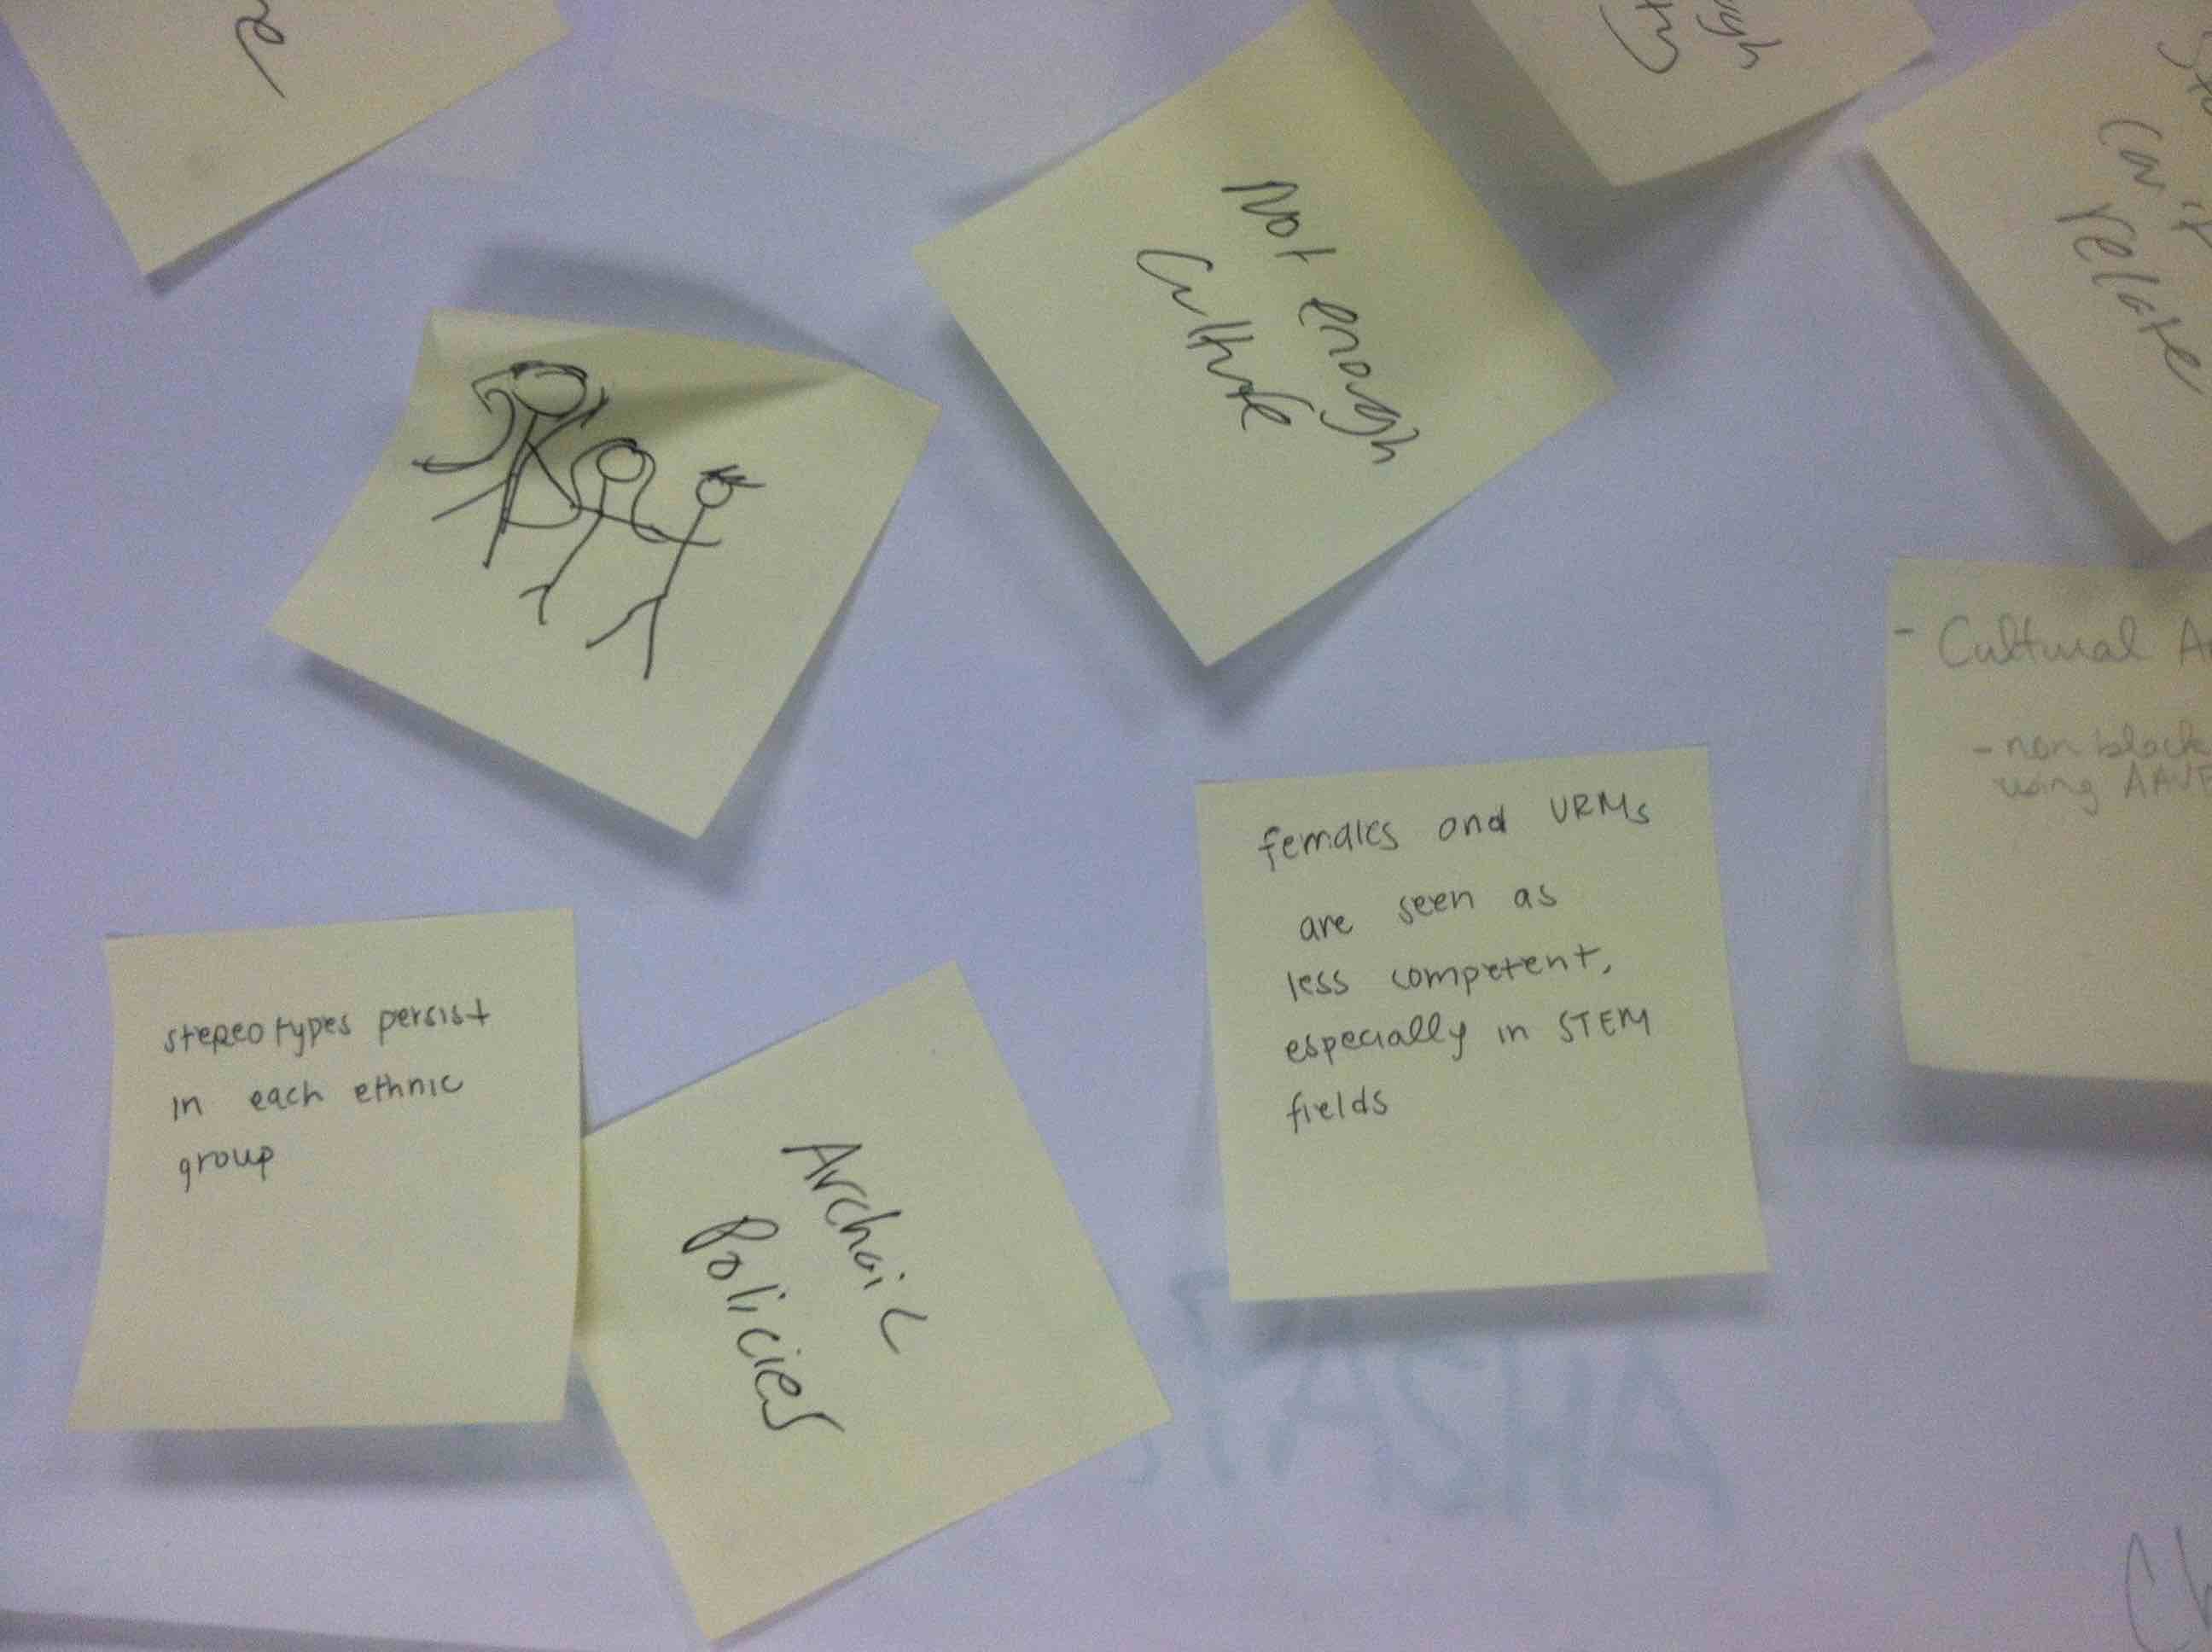 Not enough
Culture
can't
relate
- Cultural
- non black
using
females and URMs
are seen as
less competent,
especially in STEM
fields
stereotypes persist
in each ethnic
group
Archaic
Policies